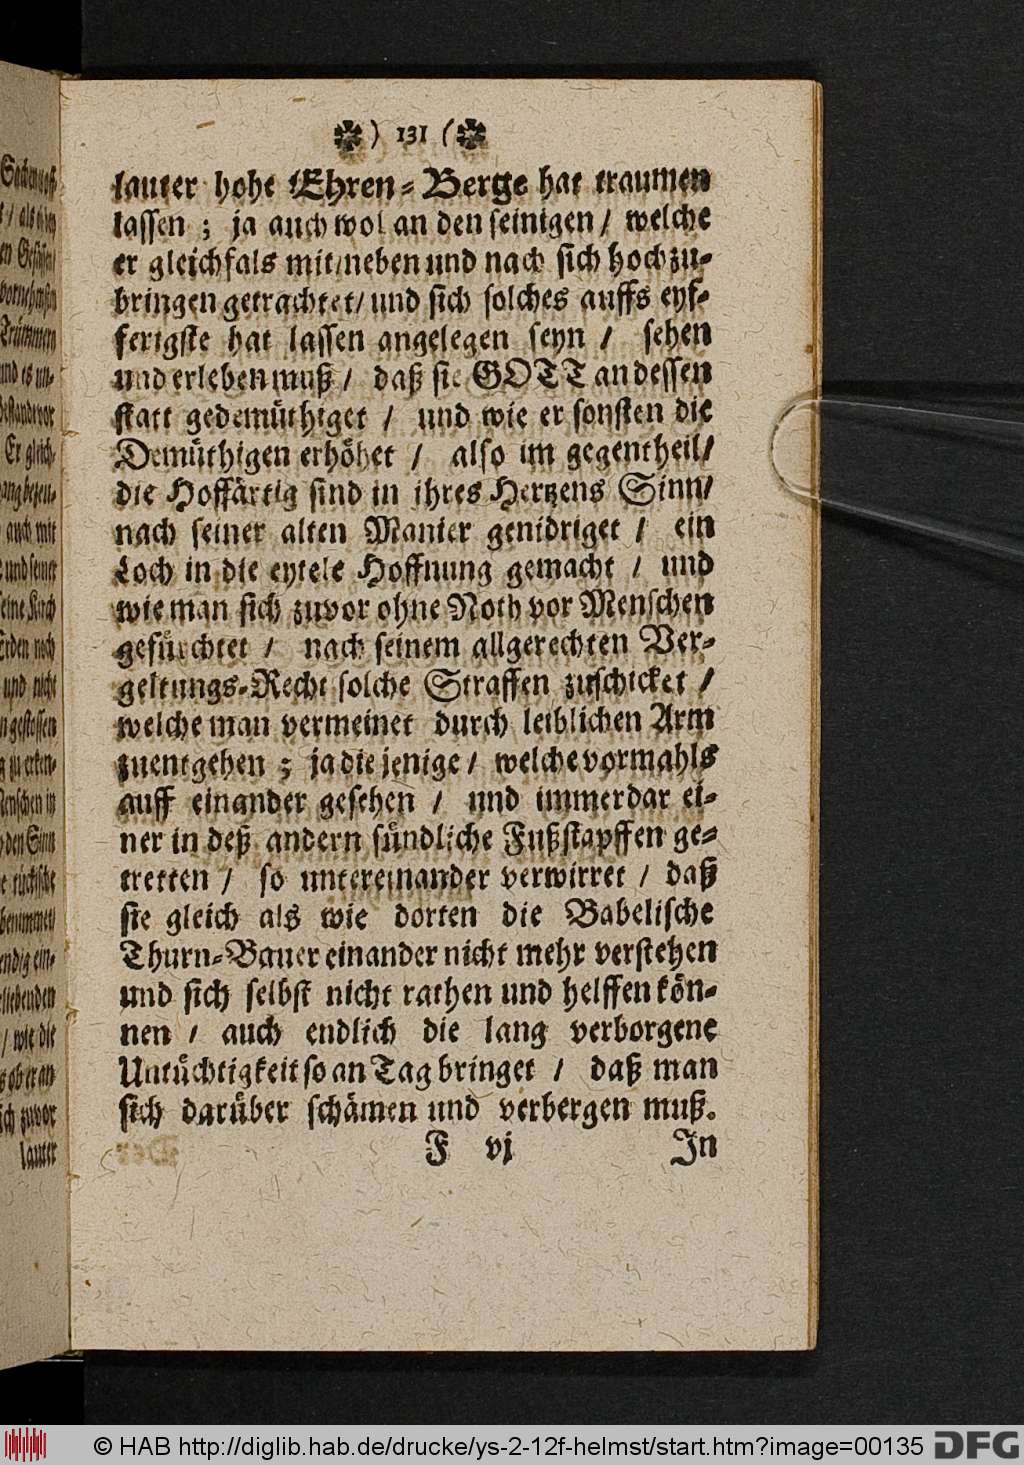 ✽ ) 131 ( ✽
lauter hohe Ehren-Berge hat traumen
lassen ; ja auch wol an den seinigen / welche
er gleichfals mit / neben und nach sich hoch zu-
bringen getrachtet / und sich solches auffs eyf-
ferigste hat lassen angelegen seyn / sehen
und erleben muß / daß sie GOTT an dessen
statt gedemüthiget / und wie er sonsten die
Demüthigen erhöhet / also im gegentheil /
die Hoffärtig sind in ihres Hertzens Sinn /
nach seiner alten Manier genidriget / ein
Loch in die eytele Hoffnung gemacht / und
wie man sich zuvor ohne Noth vor Menschen
gefürchtet / nach seinem allgerechten Ver-
geltungs-Recht solche Straffen zuschicket /
welche man vermeinet durch leiblichen Arm
zuentgehen ; ja die jenige / welche vormahls
auff einander gesehen / und immerdar ei-
ner in deß andern sündliche Fußstapffen ge-
tretten / so untereinander verwirret / daß
sie gleich als wie dorten die Babelische
Thurn-Bauer einander nicht mehr verstehen
und sich selbst nicht rathen und helffen kön-
nen / auch endlich die lang verborgene
Untüchtigkeit so an Tag bringet / daß man
sich darüber schämen und verbergen muß.
F vj In
als
vornehmsten
Trümmen
und es un-
Er gleich-
auch mit
und seiner
Erden noch
und nicht
gestossen
zu erken-
Menschen in
den Sinn
benimmet /
ein-
/ wie die
ob er an
sich zuvor
lauter
© HAB http://diglib.hab.de/drucke/ys-2-12f-helmst/start.htm?image=00135 DFG